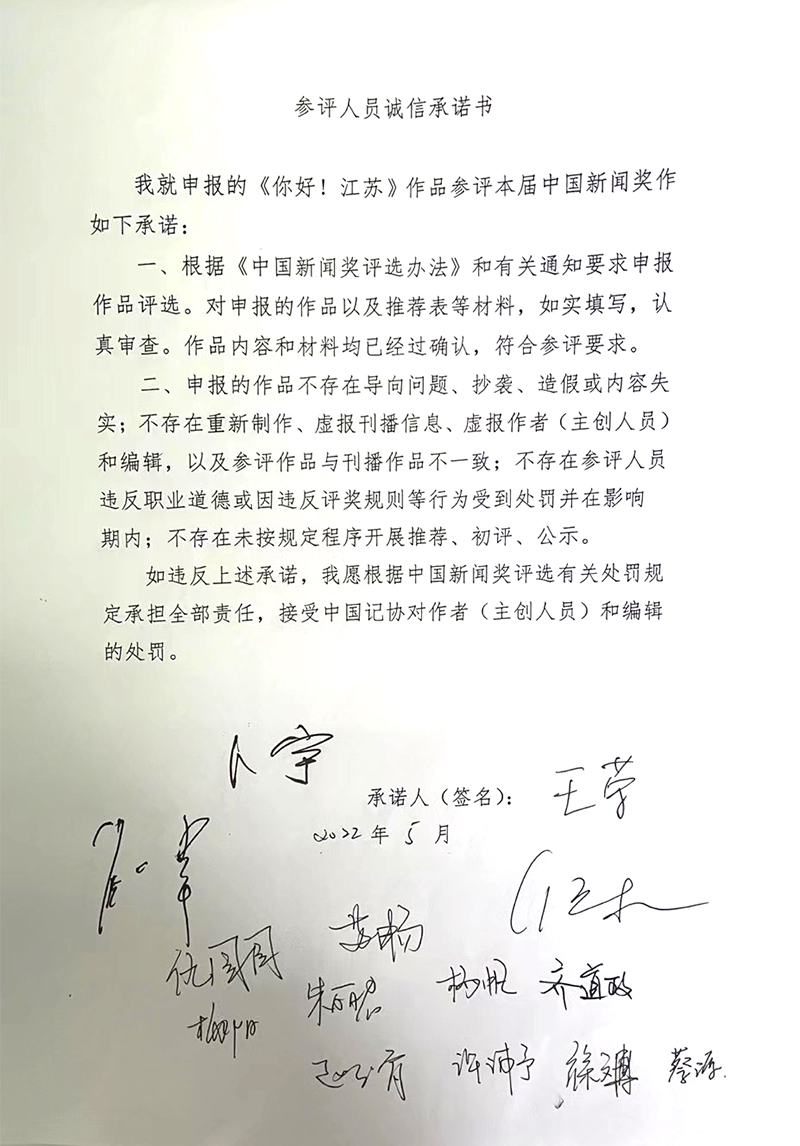 参评人员诚信承诺书
我就申报的《你好！江苏》作品参评本届中国新闻奖作
如下承诺：
一、根据《中国新闻奖评选办法》和有关通知要求申报
作品评选。对申报的作品以及推荐表等材料，如实填写，认
真审查。作品内容和材料均已经过确认，符合参评要求。
二、申报的作品不存在导向问题、抄袭、造假或内容失
实；不存在重新制作、虚报刊播信息、虚报作者（主创人员）
和编辑，以及参评作品与刊播作品不一致；不存在参评人员
违反职业道德或因违反评奖规则等行为受到处罚并在影响
期内；不存在未按规定程序开展推荐、初评、公示。
如违反上述承诺，我愿根据中国新闻奖评选有关处罚规
定承担全部责任，接受中国记协对作者（主创人员）和编辑
的处罚。
卜宇
承诺人（签名）：
2022年5月
苏杨
仇园园
杨帆 齐道政
许沛予 徐文博 蔡源